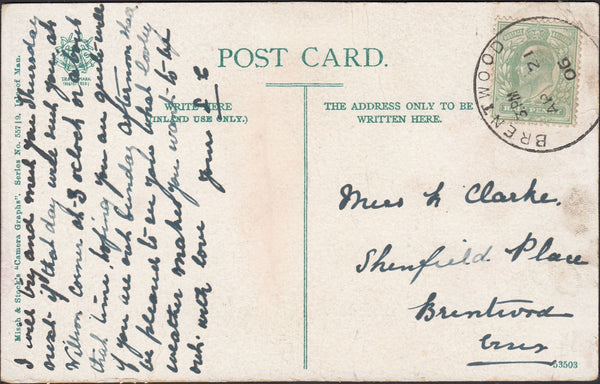 POST CARD.
WRITE HERE
(INLAND USE ONLY.)
THE ADDRESS ONLY TO BE
WRITTEN HERE.
Misch & Stock's "Camera Graphs". Series No. 557/9, Isle of Man.
TRADE MARK
I will try and meet you Thursday
next if that day will suit you, at
Wilson Corner at 3 oclock or about
that time, hoping you are quite well
if you are out Sunday afternoon shall
be pleased to see you lovely
weather makes you want to be
out. with love yours
BRENTWOOD
3. PM
AP 21
06
Miss L Clarke.
Shenfield Place
Brentwood
Essex
53503